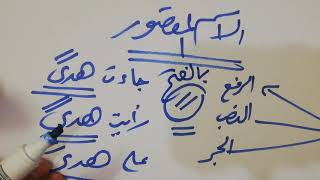 الاسم المقصور
بالفتح
الرفع جاءت هدىً
النصب رأيت هدىً
الجر على هدىً